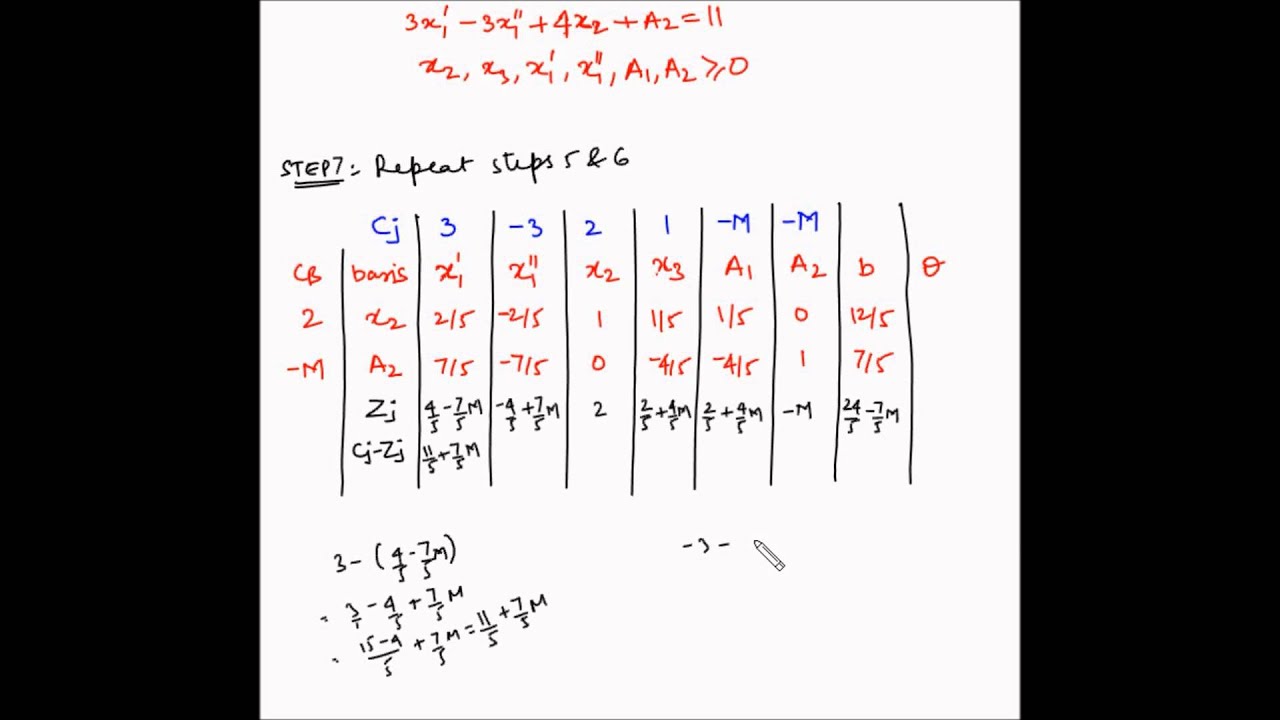 3x₁' - 3x₁'' + 4x₂ + A₂ = 11
x₂, x₃, x₁', x₁'', A₁, A₂ ≥ 0
STEP7: Repeat steps 5 & 6
Cj 3 -3 2 1 -M -M
CB basis x₁' x₁'' x₂ x₃ A₁ A₂ b θ
2 x₂ 2/5 -2/5 1 1/5 1/5 0 12/5
-M A₂ 7/5 -7/5 0 -4/5 -4/5 1 7/5
Zj 4/5 - 7/5M -4/5 + 7/5M 2 2/5 + 4/5M 2/5 + 4/5M -M 24/5 - 7/5M
Cj-Zj 11/5 + 7/5M
3 - (4/5 - 7/5M)
-3 -
= 3/1 - 4/5 + 7/5M
= 15-4/5 + 7/5M = 11/5 + 7/5M